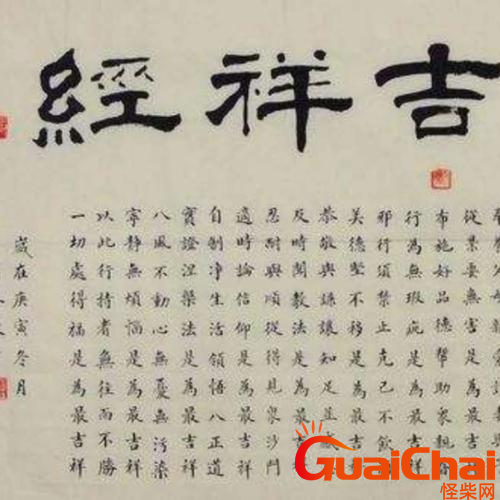 吉祥經
從業要無害是
布施好品德幫助眾親
行為無瑕疵是為最
邪行須禁止克己不飲
美德堅不移是為最
恭敬與謙讓知足並感
及時聞教法是為最
忍耐與順從得見眾沙門
適時論信仰是為最吉祥
自制净生活領悟八正道
實證涅槃法是為最吉祥
八風不動心無憂無污染
寧靜無煩惱是為最吉祥
以此行持者無往而不勝
一切處得福是為最吉祥
歲在庚寅冬月
GuaiChai
怪柴网